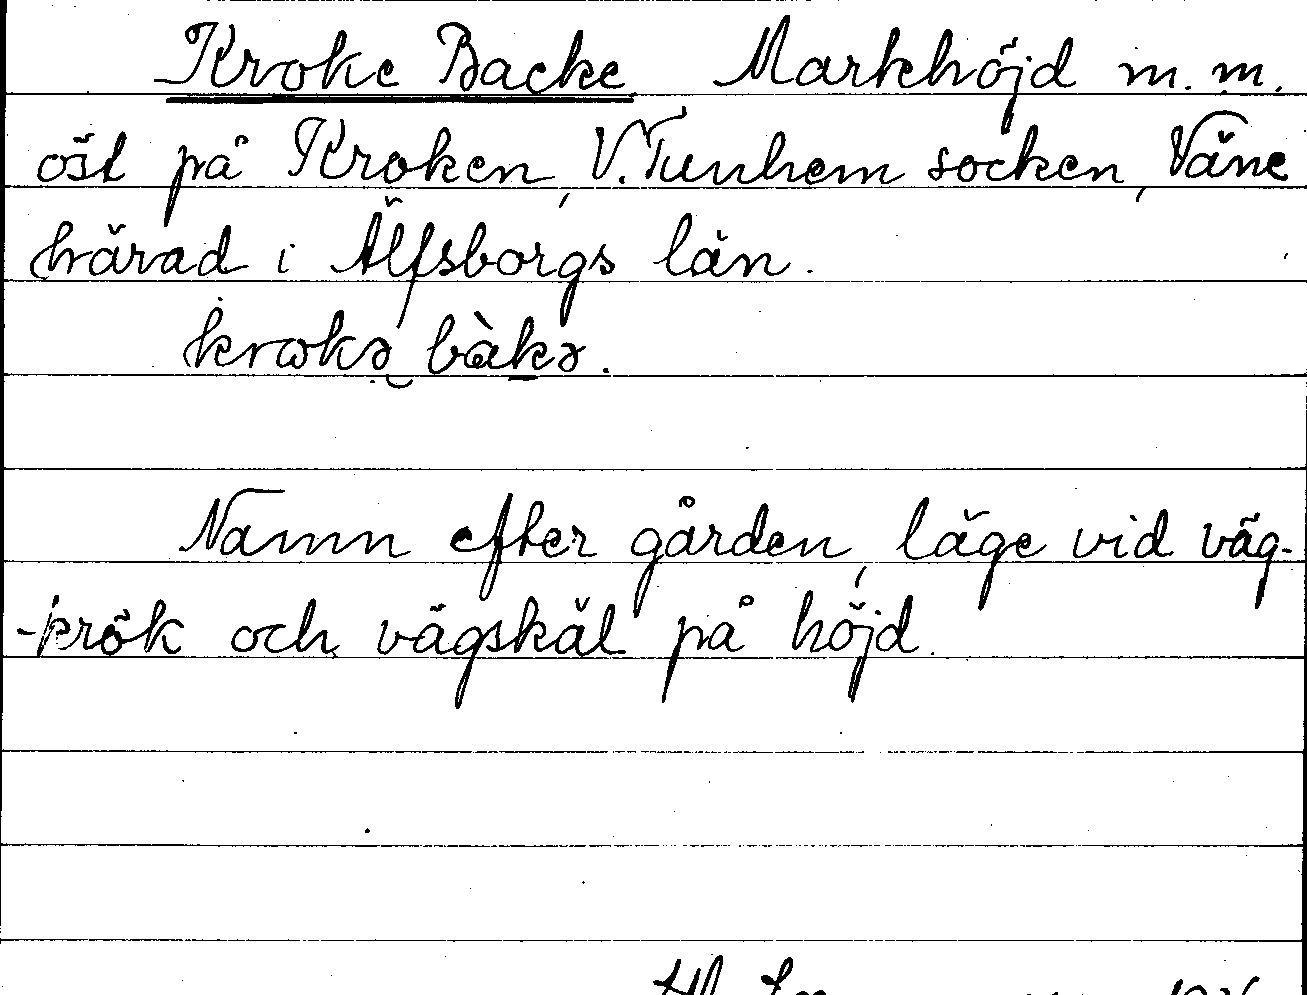 Kroke Backe Markhöjd m.m.
öst på Kroken, V.Tunhem socken, Väne
härad i Älfsborgs län.
krokə bàkə.
Namn efter gården, läge vid väg-
-krök och vägskäl på höjd.